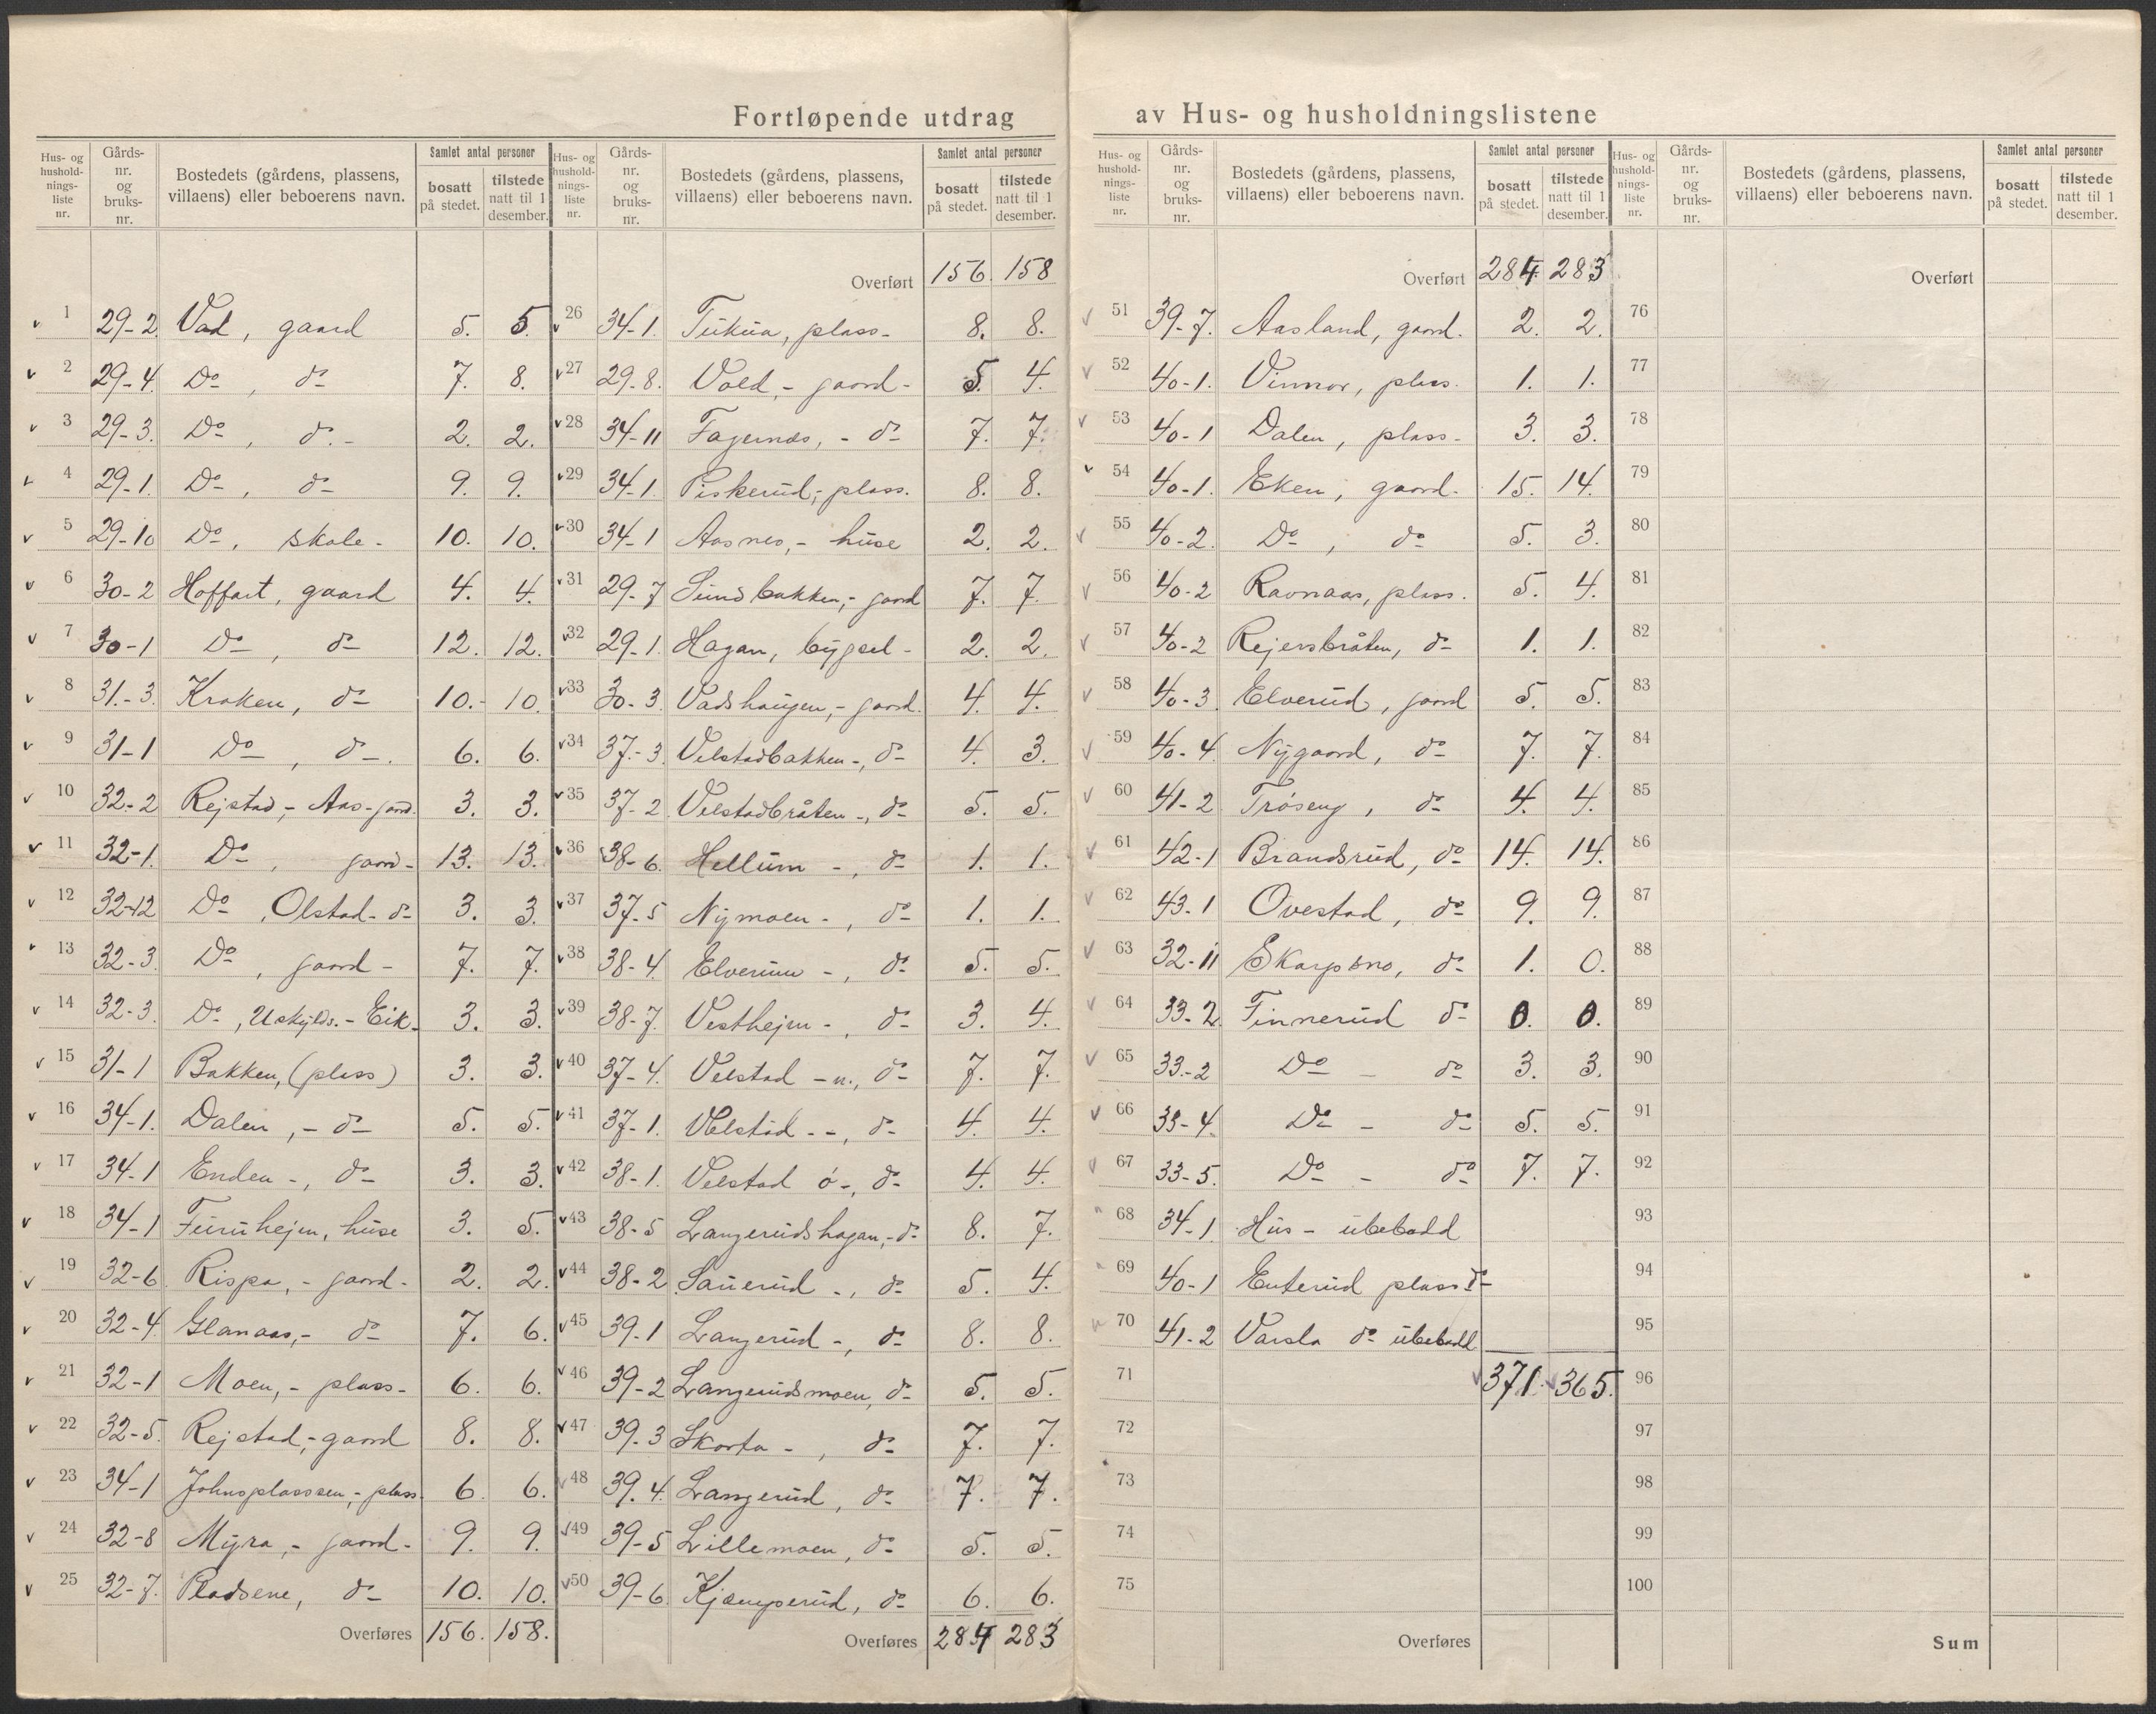 Fortløpende utdrag av Hus- og husholdningslistene
Hus- og husholdnings-liste nr. | Gårds-nr. og bruks-nr. | Bostedets (gårdens, plassens, villaens) eller beboerens navn. | Samlet antal personer | bosatt på stedet. | tilstede natt til 1 desember.
1 29-2 Vad, gaard 5. 5.
2 29-4. Do, do 7. 8.
3 29-3. Do, do- 2. 2.
4 29-1. Do, do 9. 9.
5 29-10 Do, skole- 10. 10.
6 30-2 Hoffart, gaard 4. 4.
7 30-1 Do, do 12. 12.
8 31-3. Kroken, do 10.- 10.
9 31-1 Do, do-. 6. 6.
10 32-2 Rejstad,- Aas-gaard. 3. 3.
11 32-1. Do, gaard- 13. 13.
12 32-12 Do, Olstad- do 3. 3.
13 32-3. Do, gaard- 7. 7.
14 32-3. Do, Uskylds.- Eik- 3. 3.
15 31-1 Bakken, (plass) 3. 3.
16 34-1. Dalen,- do 5. 5.
17 34-1 Enden-, do 3. 3.
18 34-1 Furuhejm, huse 3. 5.
19 32-6 Rispa,- gaard- 2. 2.
20 32-4 Glanaas,- do 7. 6.
21 32-1 Moen,- plass- 6. 6.
22 32-5. Rejstad,-gaard 8. 8.
23 34-1 Johnsplasssen,- plass. 6. 6.
24 32-8 Myra,- gaard- 9. 9.
25 32-7. Pladsene, do 10. 10.
Overføres 156. 158.
Hus- og husholdnings-liste nr. | Gårds-nr. og bruks-nr. | Bostedets (gårdens, plassens, villaens) eller beboerens navn. | Samlet antal personer | bosatt på stedet. | tilstede natt til 1 desember.
Overført 156. 158
26 34-1. Tukua, plass- 8. 8.
27 29-8. Vold,- gaard- 5. 4.
28 34-11 Fagernæs,- do 7. 7.
29 34-1. Piskerud,- plass. 8. 8.
30 34-1 Aasnes,- huse 2. 2.
31 29-7 Sundbakken,- gaard 7. 7.
32 29-1. Hagan, bygsel- 2. 2.
33 30-3. Vadshaugen,- gaard. 4. 4.
34 37-3. Velstadbakken-, do 4. 3.
35 37-2 Velstadbråten-, do 5. 5.
36 38-6. Hellum-, do 1. 1.
37 37-5 Nymoen-, do 1. 1.
38 38-4. Elverum-, do 5. 5.
39 38-7. Vesthejm-, do 3. 4.
40 37-4. Velstad -n., do 7. 7.
41 37-1. Velstad --, do 4. 4.
42 38-1. Velstad ö-, do 4. 4.
43 38-5 Langerudshagan,-do 8. 7.
44 38-2 Sauerud-, do 5. 4.
45 39-1 Langerud-, do 8. 8.
46 39-2 Langerudsmoen, do 5. 5.
47 39-3 Skorta-, do 7. 7.
48 39.4. Langerud, do 7. 7.
49 39-5 Lillemoen, do 5. 5.
50 39-6 Kjæmperud, do 6. 6.
Overføres 284 283
Hus- og husholdnings-liste nr. | Gårds-nr. og bruks-nr. | Bostedets (gårdens, plassens, villaens) eller beboerens navn. | Samlet antal personer | bosatt på stedet. | tilstede natt til 1 desember.
Overført 284. 283
51 39-7. Aasland, gaard. 2. 2.
52 40-1. Vinnor, plass. 1. 1.
53 40-1 Dalen, plass- 3. 3.
54 40-1. Eken, gaard- 15. 14.
55 40-2. Do, do 5. 3.
56 40-2 Ravnaas, plass. 5. 4.
57 40-2 Rejersbråten, do 1. 1.
58 40-3. Elverud, gaard 5. 5.
59 40-4 Nygaard, do 7. 7.
60 41-2 Trøseng, do 4. 4.
61 42-1 Brandsrud, do 14. 14.
62 43-1 Ovestad, do 9. 9.
63 32-11 Skarpsno, do 1. 0.
64 33-2 Finnerud do 0. 0.
65 33-2 Do - do 3. 3.
66 33-4 Do - do 5. 5.
67 33-5. Do - do 7. 7.
68 34-1. Hus- ubebodd
69 40-1 Enterud plass do
70 41-2 Varsla do ubebodd
71 371. 365.
72
73
74
75
Overføres
Hus- og husholdnings-liste nr. | Gårds-nr. og bruks-nr. | Bostedets (gårdens, plassens, villaens) eller beboerens navn. | Samlet antal personer | bosatt på stedet. | tilstede natt til 1 desember.
Overført
76
77
78
79
80
81
82
83
84
85
86
87
88
89
90
91
92
93
94
95
96
97
98
99
100
Sum